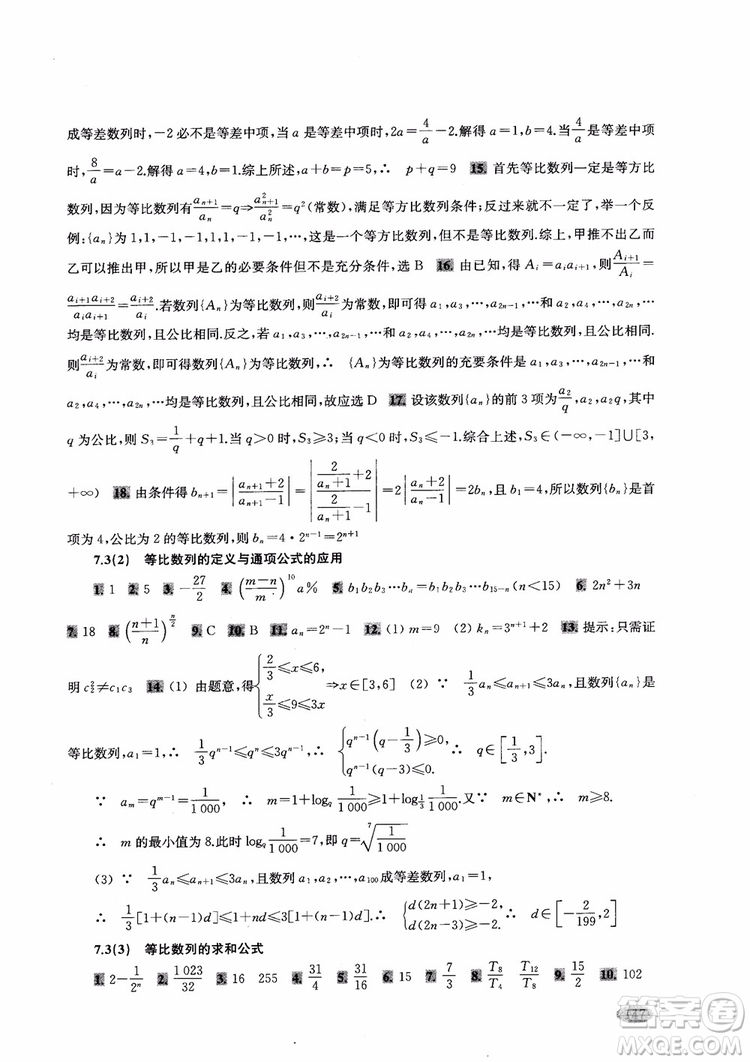 成等差数列时,-2必不是等差中项,当a是等差中项时,2a=4/a-2.解得a=1,b=4;当4/a是等差中项时,
8/a=a-2.解得a=4,b=1.综上所述,a+b=p=5,∴ p+q=9 15. 首先等比数列一定是等方比
数列,因为等比数列有a_{n+1}/a_n=q⇒a²_{n+1}/a²_n=q²(常数),满足等方比数列条件;反过来,不一定成立,举一个反
例:{a_n}为1,1,-1,-1,1,1,-1,-1,…,这是一个等方比数列,但不是等比数列.综上,甲推不出乙而
乙可以推出甲,所以甲是乙的必要条件但不是充分条件,选B 16. 由已知,得A_i=a_ia_{i+1},则A_{i+1}/A_i=
a_{i+1}a_{i+2}/a_ia_{i+1}=a_{i+2}/a_i.若数列{A_n}为等比数列,则a_{i+2}/a_i为常数,即可得a_1,a_3,…,a_{2n-1},…和a_2,a_4,…,a_{2n},…
均是等比数列,且公比相同.反之,若a_1,a_3,…,a_{2n-1},…和a_2,a_4,…,a_{2n},…均是等比数列,且公比相同.
则a_{i+2}/a_i为常数,即可得数列{A_n}为等比数列,∴ {A_n}为等比数列的充要条件是a_1,a_3,…,a_{2n-1},…和
a_2,a_4,…,a_{2n},…均是等比数列,且公比相同,故应选D 17. 设该数列{a_n}的前3项为a_2/q,a_2,a_2q,其中
q为公比,则S_3=1/q+q+1.当q>0时,S_3≥3;当q<0时,S_3≤-1.综合上述,S_3∈(-∞,-1]∪[3,
+∞) 18. 由条件得b_{n+1}=|(a_{n+1}+2)/(a_{n+1}-1)|=|(2/(a_n+1)+2)/(2/(a_n+1)-1)|=2|(a_n+2)/(a_n-1)|=2b_n,且b_1=4,所以数列{b_n}是首
项为4,公比为2的等比数列,则b_n=4·2^{n-1}=2^{n+1}
7.3(2) 等比数列的定义与通项公式的应用
1. 1 2. 5 3. -27/2 4. ((m-n)/m)^{10}a% 5. b_1b_2…b_n=b_1b_2…b_{15-n}(n<15) 6. 2n²+3n
7. 18 8. ((n+1)/n)^{n/2} 9. C 10. B 11. a_n=2^n-1 12. (1) m=9 (2) k_n=3^{n+1}+2 13. 提示:只需证
明c²_2≠c_1c_3 14. (1) 由题意,得{2/3≤x≤6, x/3≤9≤3x⇒x∈[3,6] (2) ∵ 1/3a_n≤a_{n+1}≤3a_n,且数列{a_n}是
等比数列,a_1=1,∴ 1/3q^{n-1}≤q^n≤3q^{n-1},∴ {q^{n-1}(q-1/3)≥0, q^{n-1}(q-3)≤0. ∴ q∈[1/3,3].
∵ a_m=q^{m-1}=1/1 000,∴ m=1+log_q1/1 000≥1+log_{1/3}1/1 000.又∵ m∈N*,∴ m≥8.
∴ m的最小值为8.此时log_q1/1 000=7,即q=⁷√(1/1 000)
(3) ∵ 1/3a_n≤a_{n+1}≤3a_n,且数列a_1,a_2,…,a_{100}成等差数列,a_1=1,
∴ 1/3[1+(n-1)d]≤1+nd≤3[1+(n-1)d],∴ {d(2n+1)≥-2, d(2n-3)≥-2. ∴ d∈[-2/199,2]
7.3(3) 等比数列的求和公式
1. 2-1/2^n 2. 1 023/32 3. 16 255 4. 31/4 5. 31/4 6. 15 7. 7/3 8. T_8/T_4 T_{12}/T_8 9. 15/2 10. 102
147
答案圈
MXQE.COM